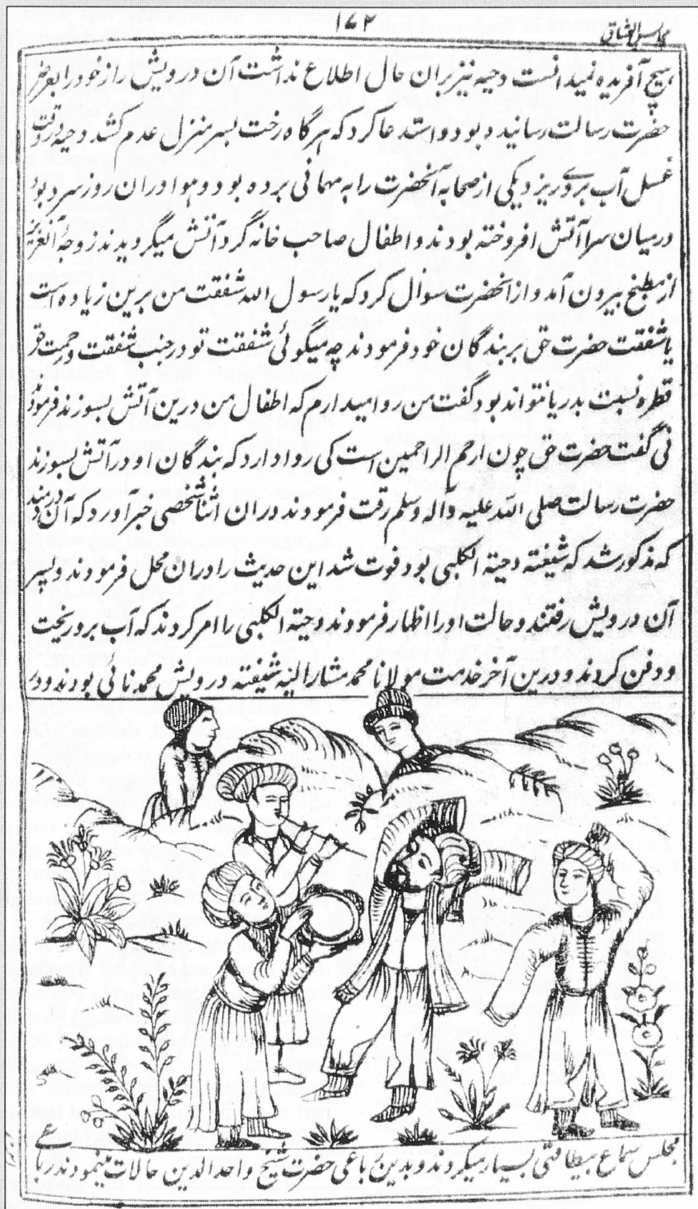 ۱۷۲
مجالس العشاق
هیچ آفریده نمیدانست و دحیه نیز بران حال اطلاع نداشت آن درویش راز خود را بعرض
حضرت رسالت رسانیده بود و استدعا کرد که هرگاه رخت بسر منزل عدم کشد دحیه در وقت
غسل آب بروی ریزد یکی از صحابه آنحضرت را به مهمانی برده بود و هوا دران روز سرد بود
درمیان سرا آتش افروخته بودند و اطفال صاحب خانه گرد آتش میگردیدند زوجۀ آنعزیز
از مطبخ بیرون آمد و از آنحضرت سوال کرد که یا رسول الله شفقت من برین زیاده است
یا شفقت حضرت حق بر بندگان خود فرمودند چه میگوئی شفقت تو در جنب شفقت و رحمت حق
قطره نسبت بدریا نتواند بود گفت من روا میدارم که اطفال من درین آتش بسوزند فرمود
نی گفت حضرت حق چون ارحم الراحمین است کی روا دارد که بندگان او در آتش بسوزند
حضرت رسالت صلی الله علیه وآله وسلم رقت فرمودند دران اثنا شخصی خبر آورد که آن
که مذکور شد که شیفته دحیة الکلبی بود فوت شد این حدیث را دران محل فرمودند و بسر
آن درویش رفتند و حالت او را اظهار فرمودند و دحیة الکلبی را امر کردند که آب برو ریخت
و دفن کردند و درین آخر خدمت مولانا محمد مشار الیه شیفته درویش محمد نائی بودند و در
مجلس سماع بیطاقتی بسیار میکردند و بدین رباعی حضرت شیخ اوحدالدین حالات مینمودند رباعی